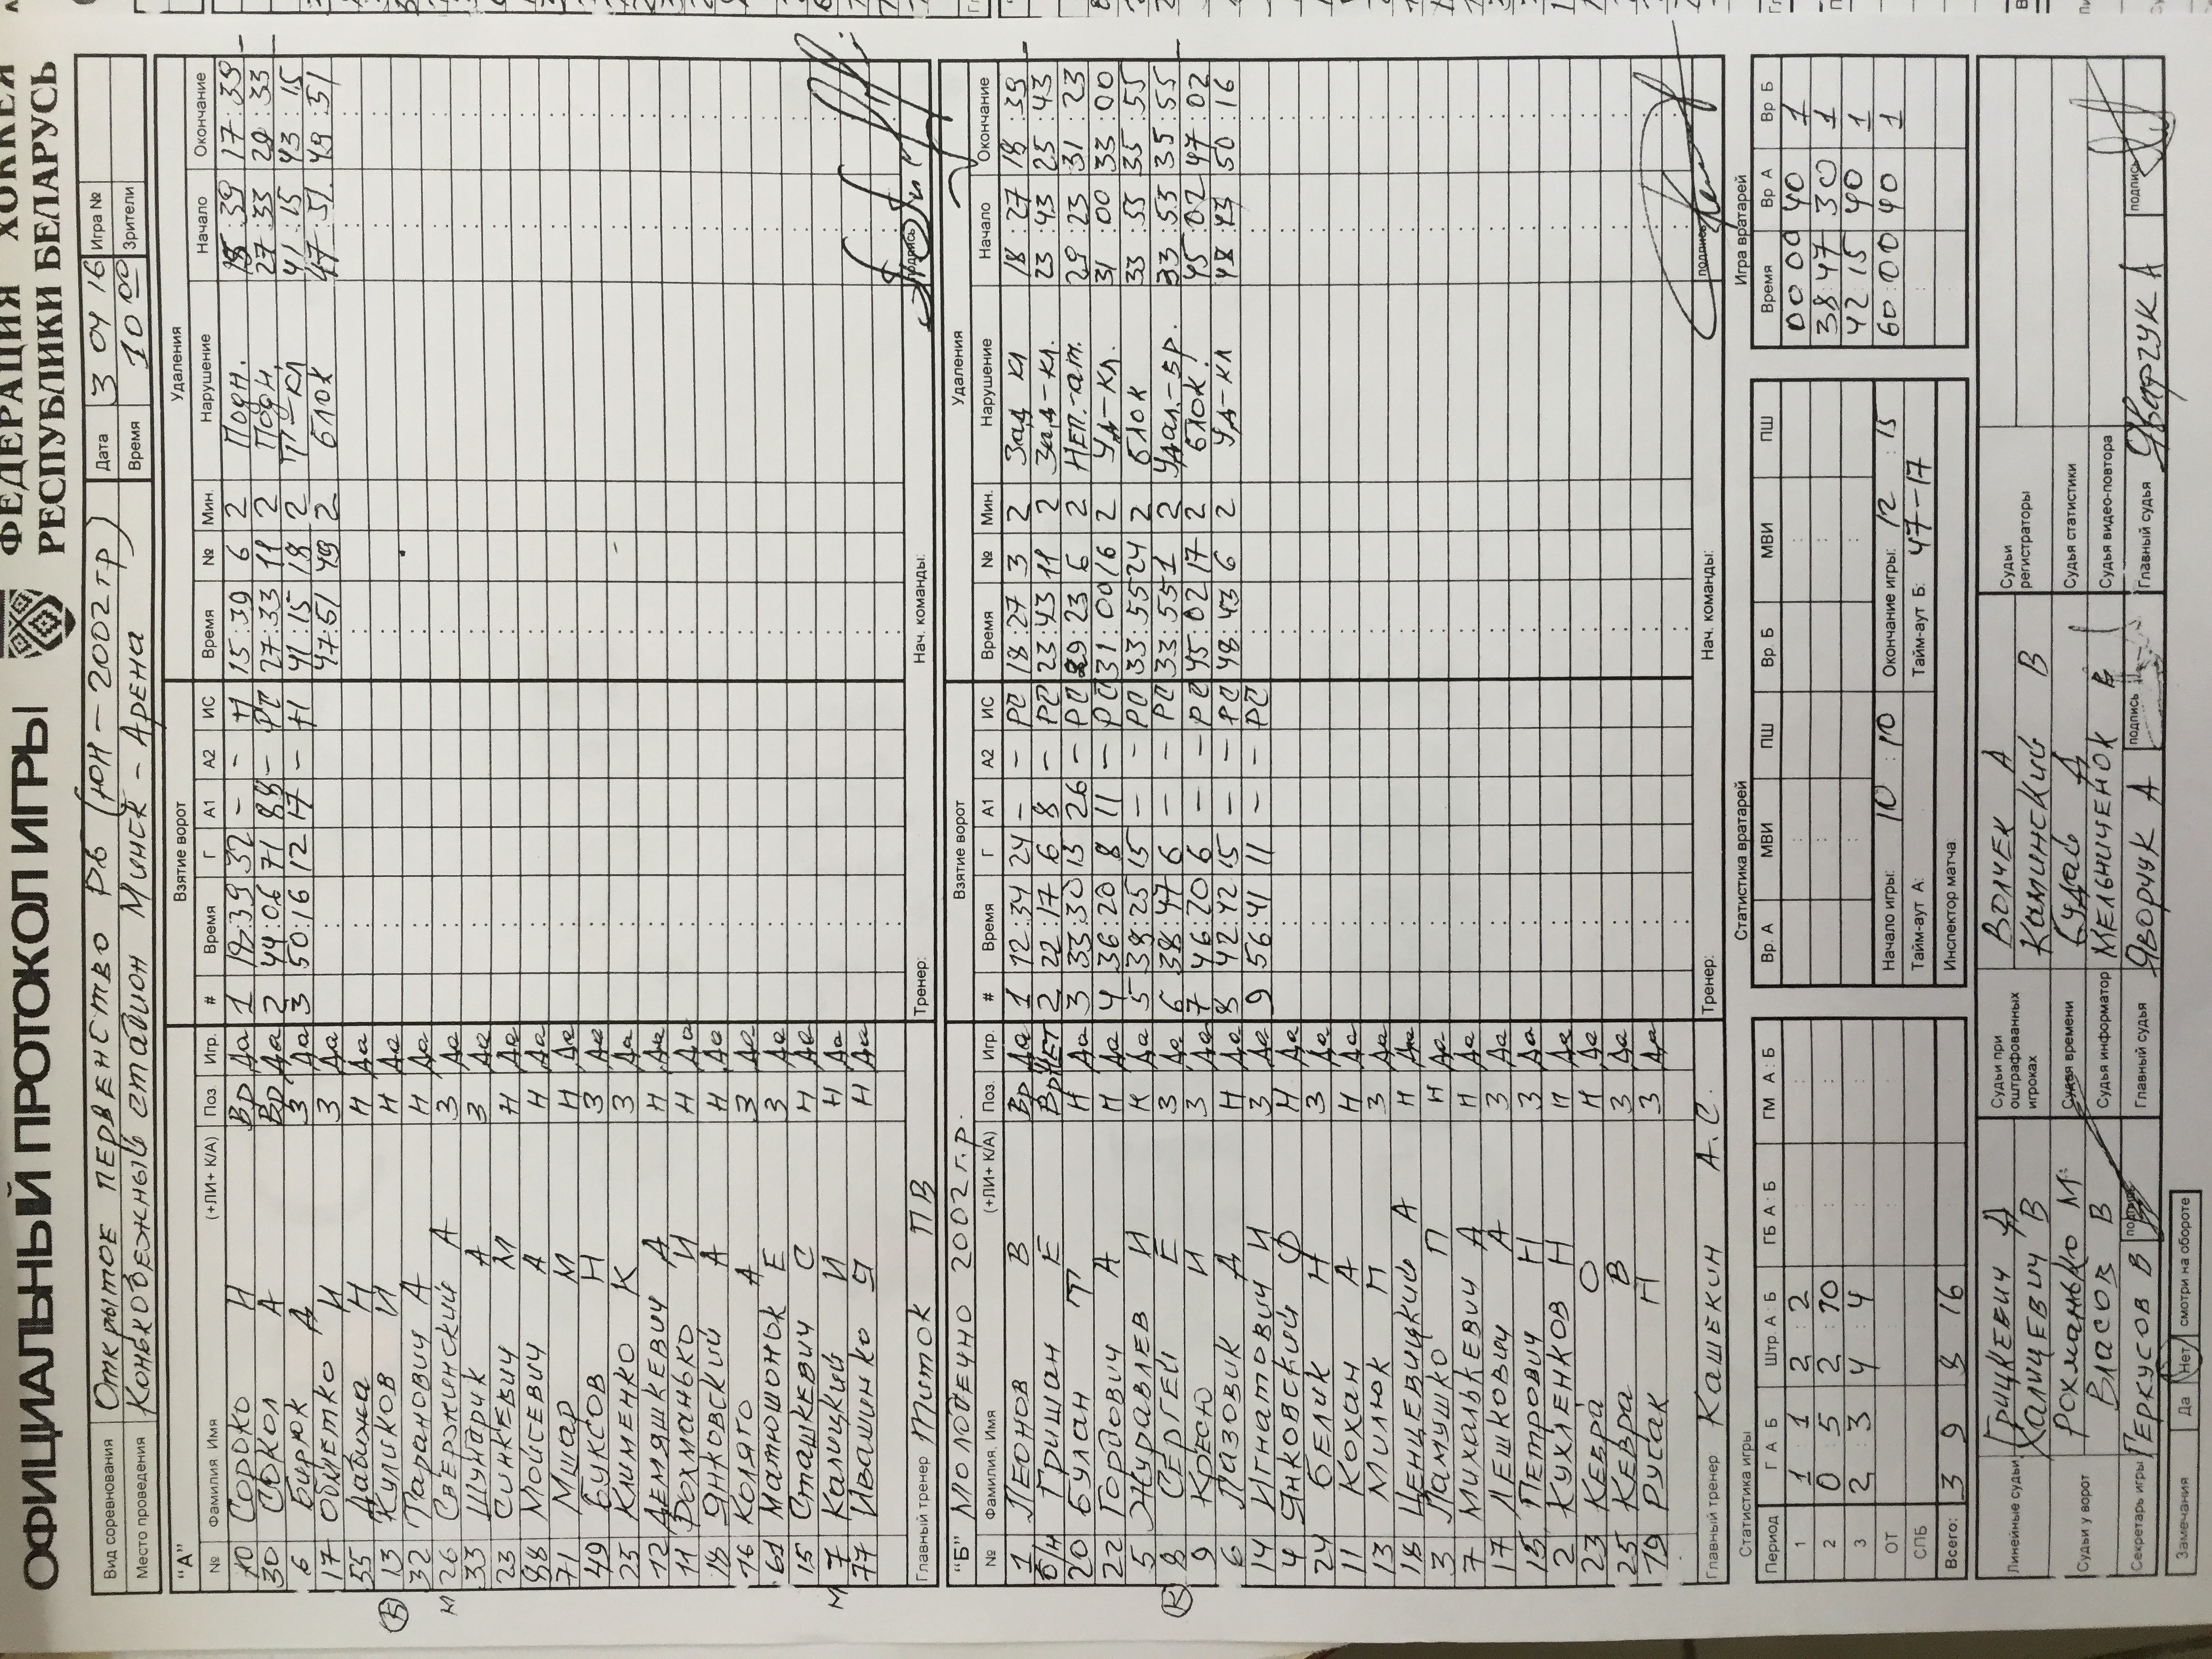 ОФИЦИАЛЬНЫЙ ПРОТОКОЛ ИГРЫ
ФЕДЕРАЦИЯ ХОККЕЯ
РЕСПУБЛИКИ БЕЛАРУСЬ
Вид соревнования Открытое первенство РБ (ЮН-2002 гр) Дата 3 04 16 Игра №
Место проведения Конькобежный стадион Минск-Арена Время 10 00 Зрители
"А" Взятие ворот Удаления
№ Фамилия Имя (+ЛИ+ К/А) Поз Игр. # Время Г А1 А2 ИС Время № Мин. Нарушение Начало Окончание
Сороко Н Вр Да 1 39 32 - - +1 15:39 6 2 Подн. 15:39 17:39
30 Сокол А Вр Да 2 44:06 71 88 - РП 27:33 11 2 Подн. 27:33 29:33
6 Бирюк А З Да 3 50:16 12 17 - +1 41:15 18 2 41:15 43:15
17 Обметко И З Да 47:51 49 2 блок 47:51 49:51
55 Дабижа Н Н Да
13 Куликов И Н Да
32 Таранович А Н Да
26 Свержинский А З Да
33 Шунарик А З Да
23 Синкевич М Н Да
88 Мойсевич А Н Да
71 Мшар М Н Да
49 Буксов Н З Да
25 Клименко К З Да
12 Демяшкевич А Н Да
11 Рохманько И Н Да
18 Янковский А Н Да
76 Коляго А З Да
61 Матюшонок Е З Да
15 Сташкевич С Н Да
7 Калицкий И Н Да
77 Ивашинко Я Н Да
Главный тренер Титок ПВ Тренер: Нач. команды: подпись
"Б" Молодечно 2002 г.р. Взятие ворот Удаления
№ Фамилия, Имя (+ЛИ+ К/А) Поз Игр. # Время Г А1 А2 ИС Время № Мин. Нарушение Начало Окончание
1 Леонов В Вр Да 1 12:34 24 - - РС 18:27 3 2 Зад кл 18:27 18:39
Гришан Е Вр НЕТ 2 22:17 6 8 - РС 23:43 11 2 Зад-кл. 23:43 25:43
20 Булан Т Н Да 3 33:30 15 26 - РС 29:23 6 2 Неп.-ат. 29:23 31:23
22 Гордович А Н Да 4 36:20 8 11 - РС 31:00 16 2 Уд-кл. 31:00 33:00
5 Журавлев И Н Да 5 38:25 15 - - РС 33:55 24 2 блок 33:55 35:55
8 Сергей Е З Да 6 38:47 6 - - РС 33:55 1 2 33:55 35:55
9 Кресю И З Да 7 46:20 6 - - РС 45:02 17 2 блок 45:02 47:02
6 Лазовик А Н Да 8 42:42 15 - - РС 48:43 6 2 Уд-кл 48:43 50:16
14 Игнатович И З Да 9 56:41 11 - - РС
4 Янковский Ф Н Да
24 Белик Н З Да
11 Кохан А Н Да
13 Милюк П З Да
18 Ценцевицкий А Н Да
3 Ламушко П Н Да
7 Михалькевич А Н Да
17 Лешкович А З Да
15 Петрович Н З Да
2 Кухленков Н Н Да
23 Кевра О Н Да
25 Кевра В З Да
19 Русак Н З Да
Главный тренер Кашекин А.С. Тренер: Нач. команды: подпись
Статистика игры Статистика вратарей Игра вратарей
Период Г А Б Штр. А : Б ГБ А : Б ГМ А : Б Вр. А МВИ ПШ Вр Б МВИ ПШ Время Вр А Вр Б
1 1 : 1 2 : 2 00 00 40 1
2 0 : 5 2 : 10 38:47 30 1
3 2 : 3 4 : 4 42 15 40 1
ОТ Начало игры: 10 : 10 Окончание игры: 12 : 15 60:00 40 1
СПБ Тайм-аут А: Тайм-аут Б: 47-17
Всего: 3 9 8 16 Инспектор матча:
Линейные судьи Грицкевич А Судьи при оштрафованных игроках Волчек А Судьи регистраторы
Халицевич В Каминский В
Судьи у ворот Рохманько М. Судья времени Судья статистики
Власов В Судья информатор Мельниченок В Судья видео-повтора
Секретарь игры Перкусов В подпись Главный судья Яворчук А подпись Главный судья подпись
Замечания Да Нет смотри на обороте